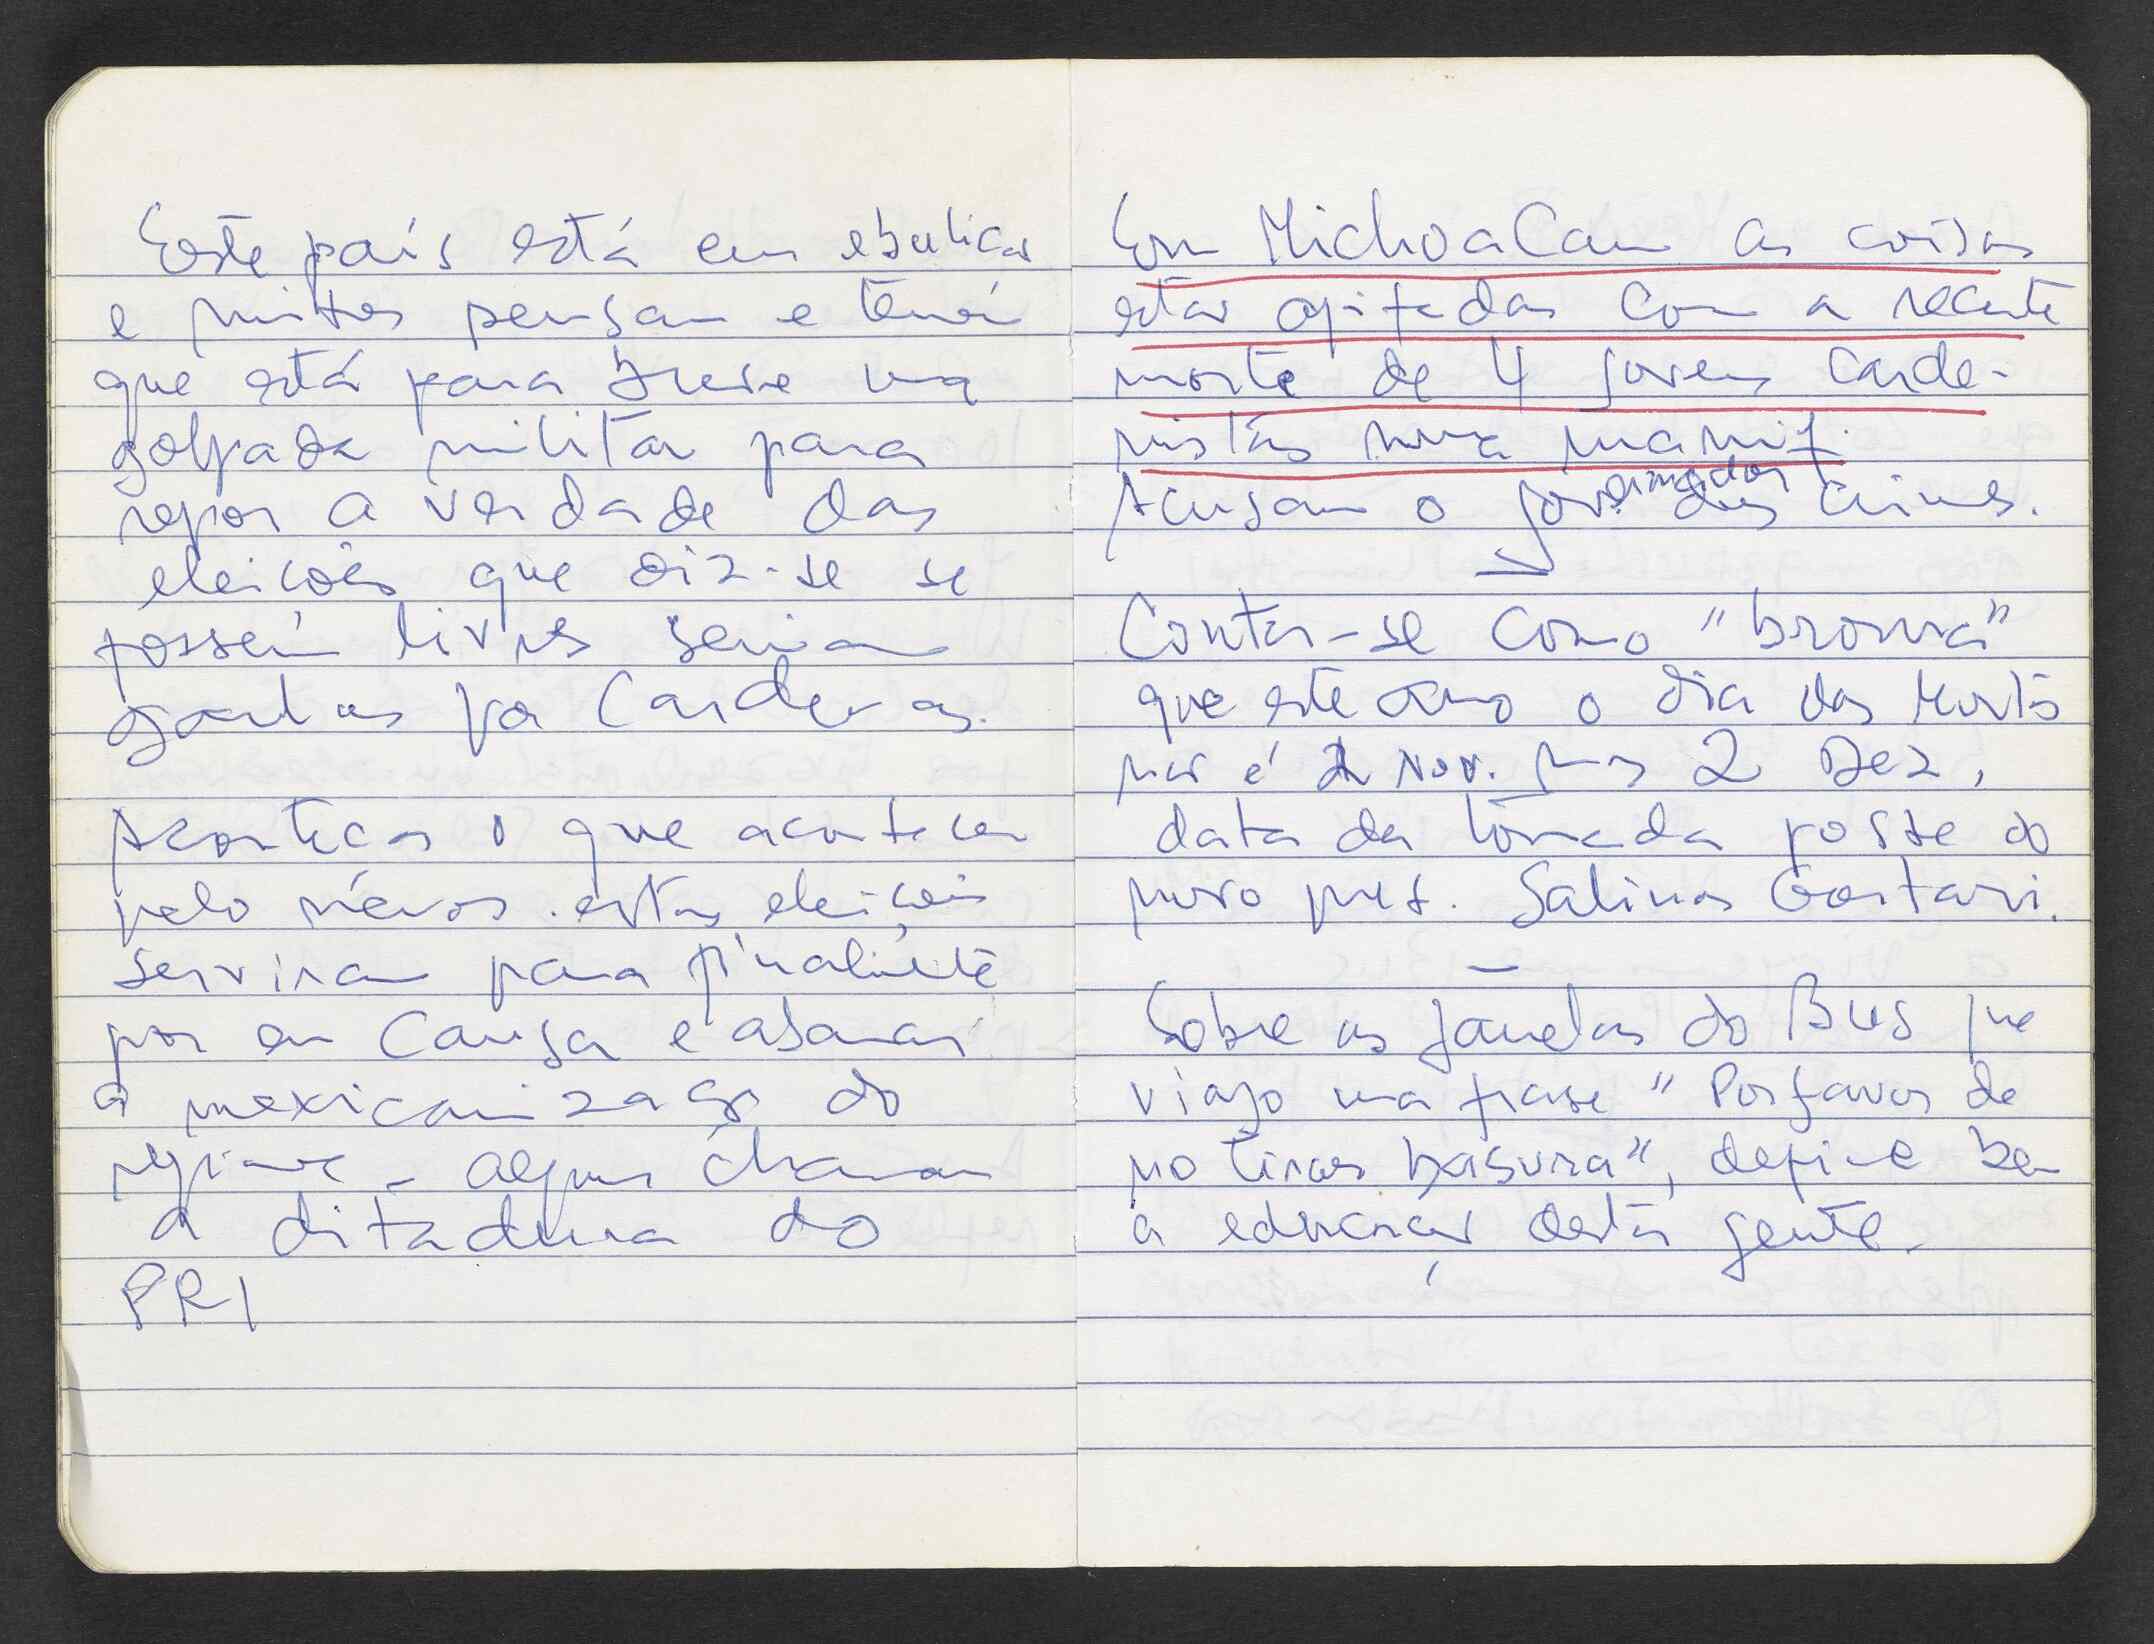 Este país está em ebulição
e muitos pensam e temem
que está para breve uma
golpada militar para
repor a verdade das
eleições que diz-se se
fossem livres seriam
ganhas por Cardenas.
Aconteça o que acontecer
pelo menos estas eleições
serviram para finalmente
por em causa e abanar
a mexicanização do
regime - alguns chamam
a ditadura do
PRI
Em Michoacan as coisas
estão agitadas com a recente
morte de 4 jovens carde-
nistas numa manif.
Acusam o governador dos crimes.
Conta-se como "broma"
que este ano o dia dos Mortos
não é 2 Nov. mas 2 Dez,
data da tomada posse do
novo pres. Salinas Gortari.
Sobre as janelas do Bus que
viajo uma frase "Por favor de
no tirar basura", define bem
a educação desta gente.